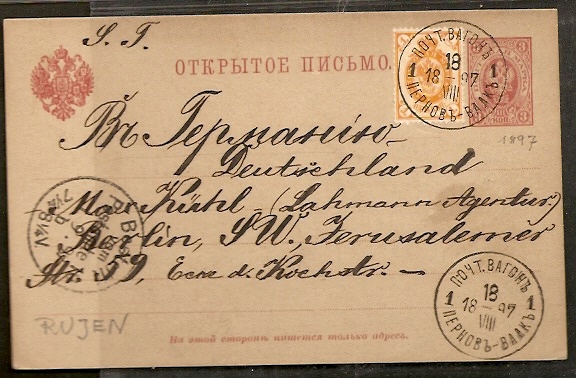 S. T.
ОТКРЫТОЕ ПИСЬМО.
ПОЧТ. ВАГОНЪ
18
1 18 – 97 1
VIII
ПЕРНОВЪ–ВАЛКЪ
3
1897
Въ Германію
Deutschland
Max Kühl (Lahmann Agentur.)
Berlin, S.W. Jerusalemer
Str. 9, Ecke d. Kochstr. —
7½–8½V
ПОЧТ. ВАГОНЪ
18
1 18 – 97 1
VIII
ПЕРНОВЪ–ВАЛКЪ
RUJEN
На этой сторонѣ пишется только адресъ.